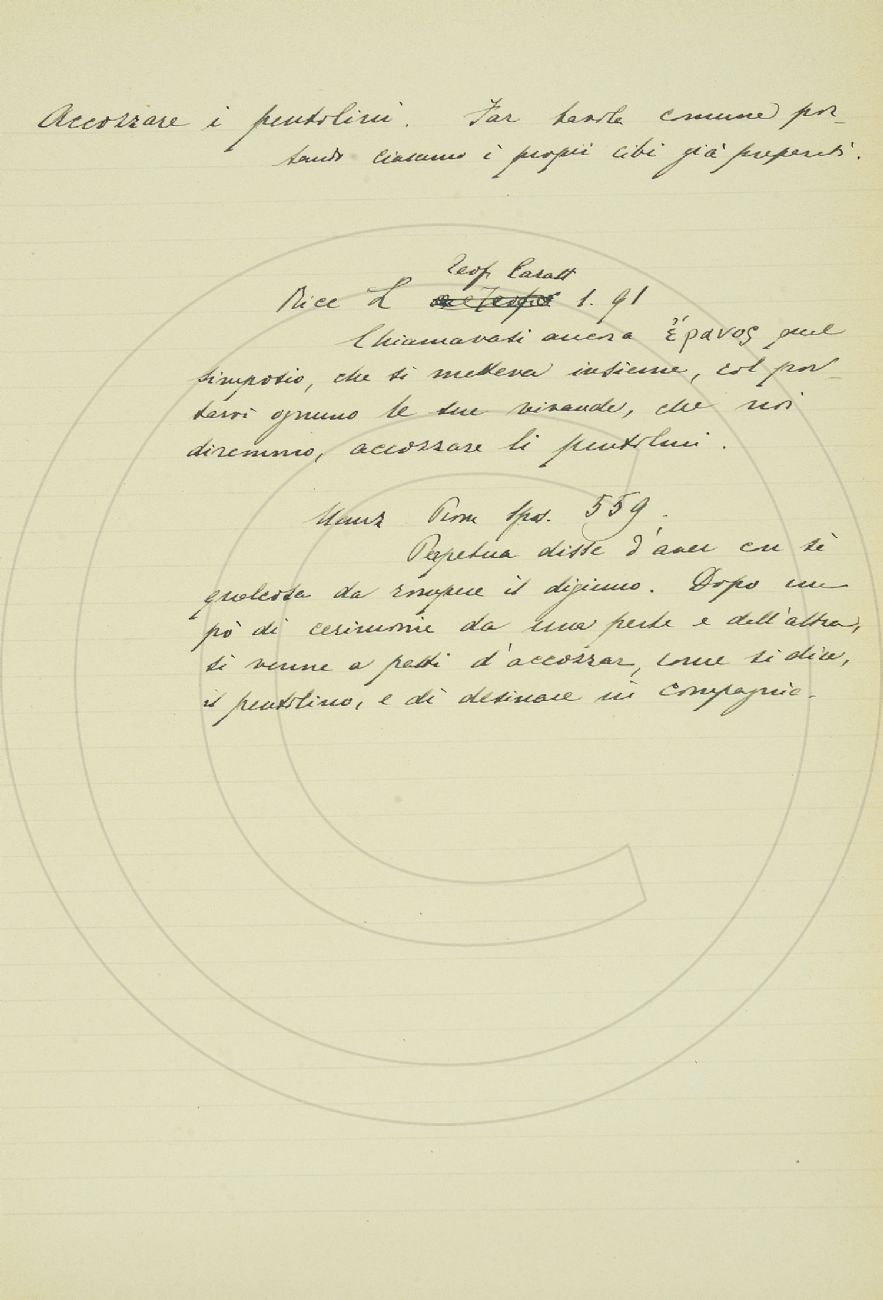 Accozzare i pentolini. Far tavola comune por-
tando ciascuno i propri cibi già preparati.
Teof Caratt
Ricc L 1. 91
Chiamavasi ancora ἔρανος quel
simposio, che si metteva insieme, col por-
tarvi ognuno le sue vivande, che noi
diremmo, accozzare li pentolini.
Manz Prom Spos. 559.
Perpetua disse d'aver con sè
qualcosa da rompere il digiuno. Dopo un
pò di cerimonie da una parte e dall'altra,
si venne a patti d'accozzar, come si dice,
il pentolino, e di desinare in compagnia.